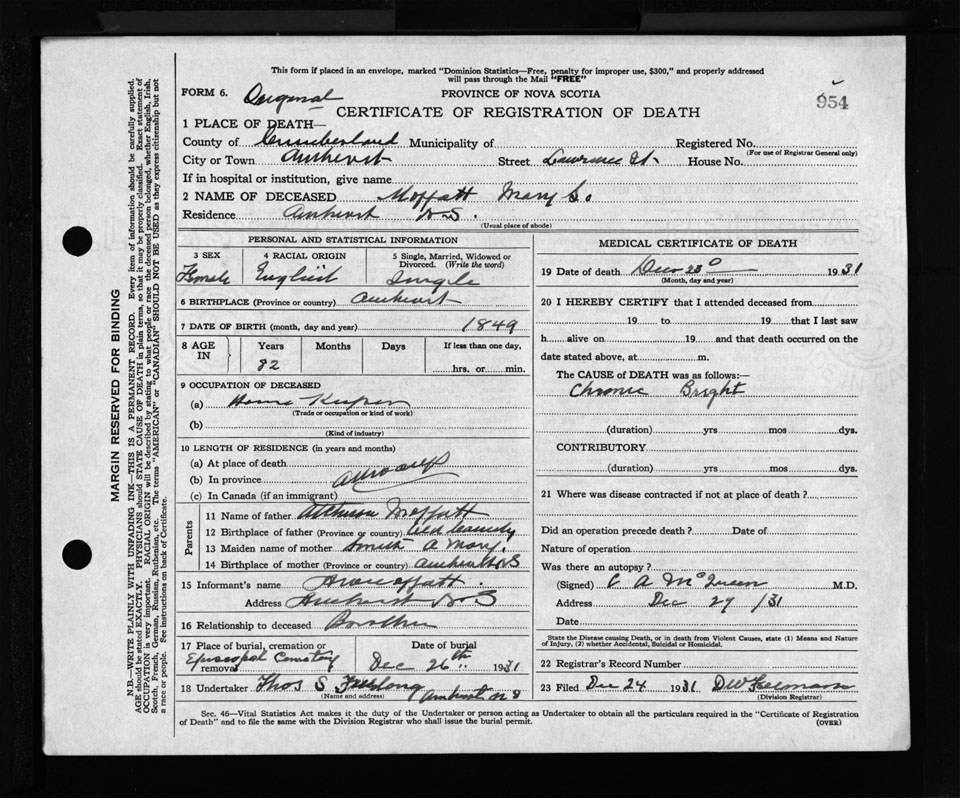 This form if placed in an envelope, marked "Dominion Statistics—Free, penalty for improper use, $300," and properly addressed
will pass through the Mail "FREE"
FORM 6. Original PROVINCE OF NOVA SCOTIA 954
CERTIFICATE OF REGISTRATION OF DEATH
1 PLACE OF DEATH—
County of Cumberland Municipality of Registered No.
(For use of Registrar General only)
City or Town Amherst Street Lawrence St. House No.
If in hospital or institution, give name
2 NAME OF DECEASED Moffatt Mary S.
Residence Amherst N.S.
(Usual place of abode)
PERSONAL AND STATISTICAL INFORMATION
3 SEX 4 RACIAL ORIGIN 5 Single, Married, Widowed or
Divorced. (Write the word)
Female English Single
6 BIRTHPLACE (Province or country) Amherst
7 DATE OF BIRTH (month, day and year) 1849
8 AGE IN Years Months Days If less than one day,
82 hrs. or min.
9 OCCUPATION OF DECEASED
(a) Home Keeper
(Trade or occupation or kind of work)
(b)
(Kind of industry)
10 LENGTH OF RESIDENCE (in years and months)
(a) At place of death
(b) In province always
(c) In Canada (if an immigrant)
Parents
11 Name of father Moffatt
12 Birthplace of father (Province or country)
13 Maiden name of mother Smith A Mary.
14 Birthplace of mother (Province or country) Amherst NS
15 Informant's name Moffatt.
Address Amherst N S
16 Relationship to deceased Brother
17 Place of burial, cremation or removal Date of burial
Episcopal Cemetery Dec 26th 1931
18 Undertaker Thos S Furlong Amherst N S
(Name and address)
MEDICAL CERTIFICATE OF DEATH
19 Date of death Dec 23 1931
(Month, day and year)
20 I HEREBY CERTIFY that I attended deceased from
19 to 19 that I last saw
h alive on 19 and that death occurred on the
date stated above, at m.
The CAUSE of DEATH was as follows:—
Chronic Bright
(duration) yrs mos dys.
CONTRIBUTORY
(duration) yrs mos dys.
21 Where was disease contracted if not at place of death?
Did an operation precede death? Date of
Nature of operation
Was there an autopsy?
(Signed) C A McQueen M.D.
Address Dec 29/31
Date
State the Disease causing Death, or in death from Violent Causes, state (1) Means and Nature
of Injury, (2) whether Accidental, Suicidal or Homicidal.
22 Registrar's Record Number
23 Filed Dec 24 1931 DW
(Division Registrar)
Sec. 46—Vital Statistics Act makes it the duty of the Undertaker or person acting as Undertaker to obtain all the particulars required in the "Certificate of Registration
of Death" and to file the same with the Division Registrar who shall issue the burial permit. (OVER)
MARGIN RESERVED FOR BINDING
N.B.—WRITE PLAINLY WITH UNFADING INK—THIS IS A PERMANENT RECORD. Every item of information should be carefully supplied.
AGE should be stated EXACTLY. PHYSICIANS should STATE CAUSE OF DEATH in plain terms, so that it may be properly classified. Exact statement of
OCCUPATION is very important. RACIAL ORIGIN will be described by stating to what people or race the deceased person belonged, whether English, Irish,
Scotch, French, German, Russian, Ruthenian, etc. The terms "AMERICAN" or "CANADIAN" SHOULD NOT BE USED as they express citizenship but not
a race or people. See instructions on back of Certificate.